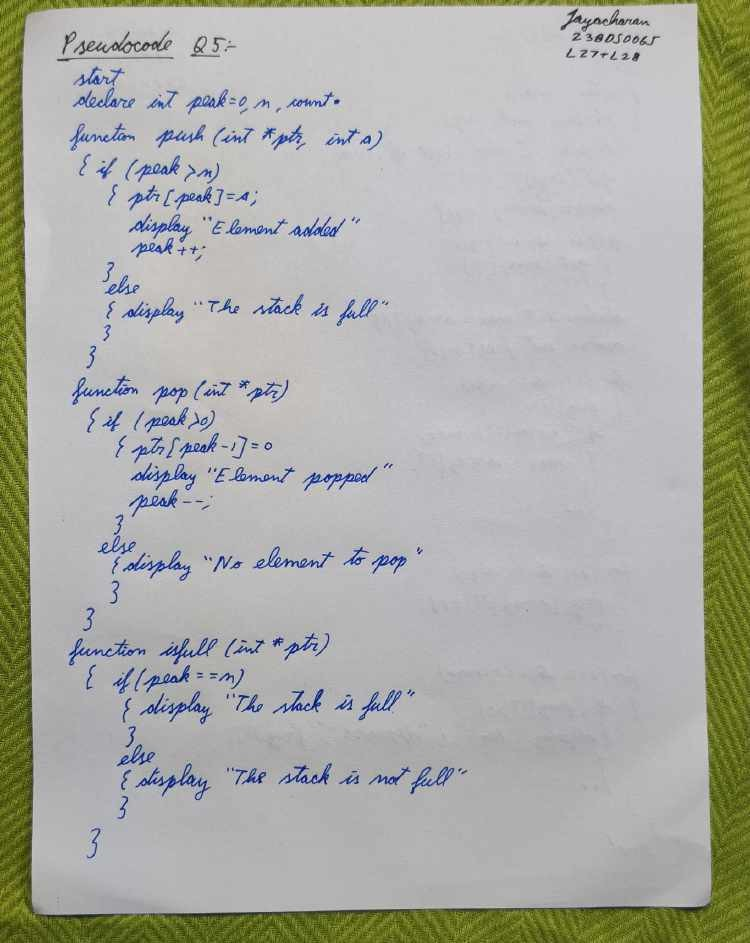 Jayacharan
23BDS0065
L27+L28
Pseudocode Q5:-
start
declare int peak=0, n, count.
function push (int *ptr, int a)
{ if (peak > n)
{ ptr[peak]=a;
display "Element added"
peak++;
}
else
{ display "The stack is full"
}
}
function pop (int *ptr)
{ if (peak>0)
{ ptr[peak-1]=0
display "Element popped"
peak--;
}
else
{ display "No element to pop"
}
}
function isfull (int *ptr)
{ if(peak==n)
{ display "The stack is full"
}
else
{ display "The stack is not full"
}
}